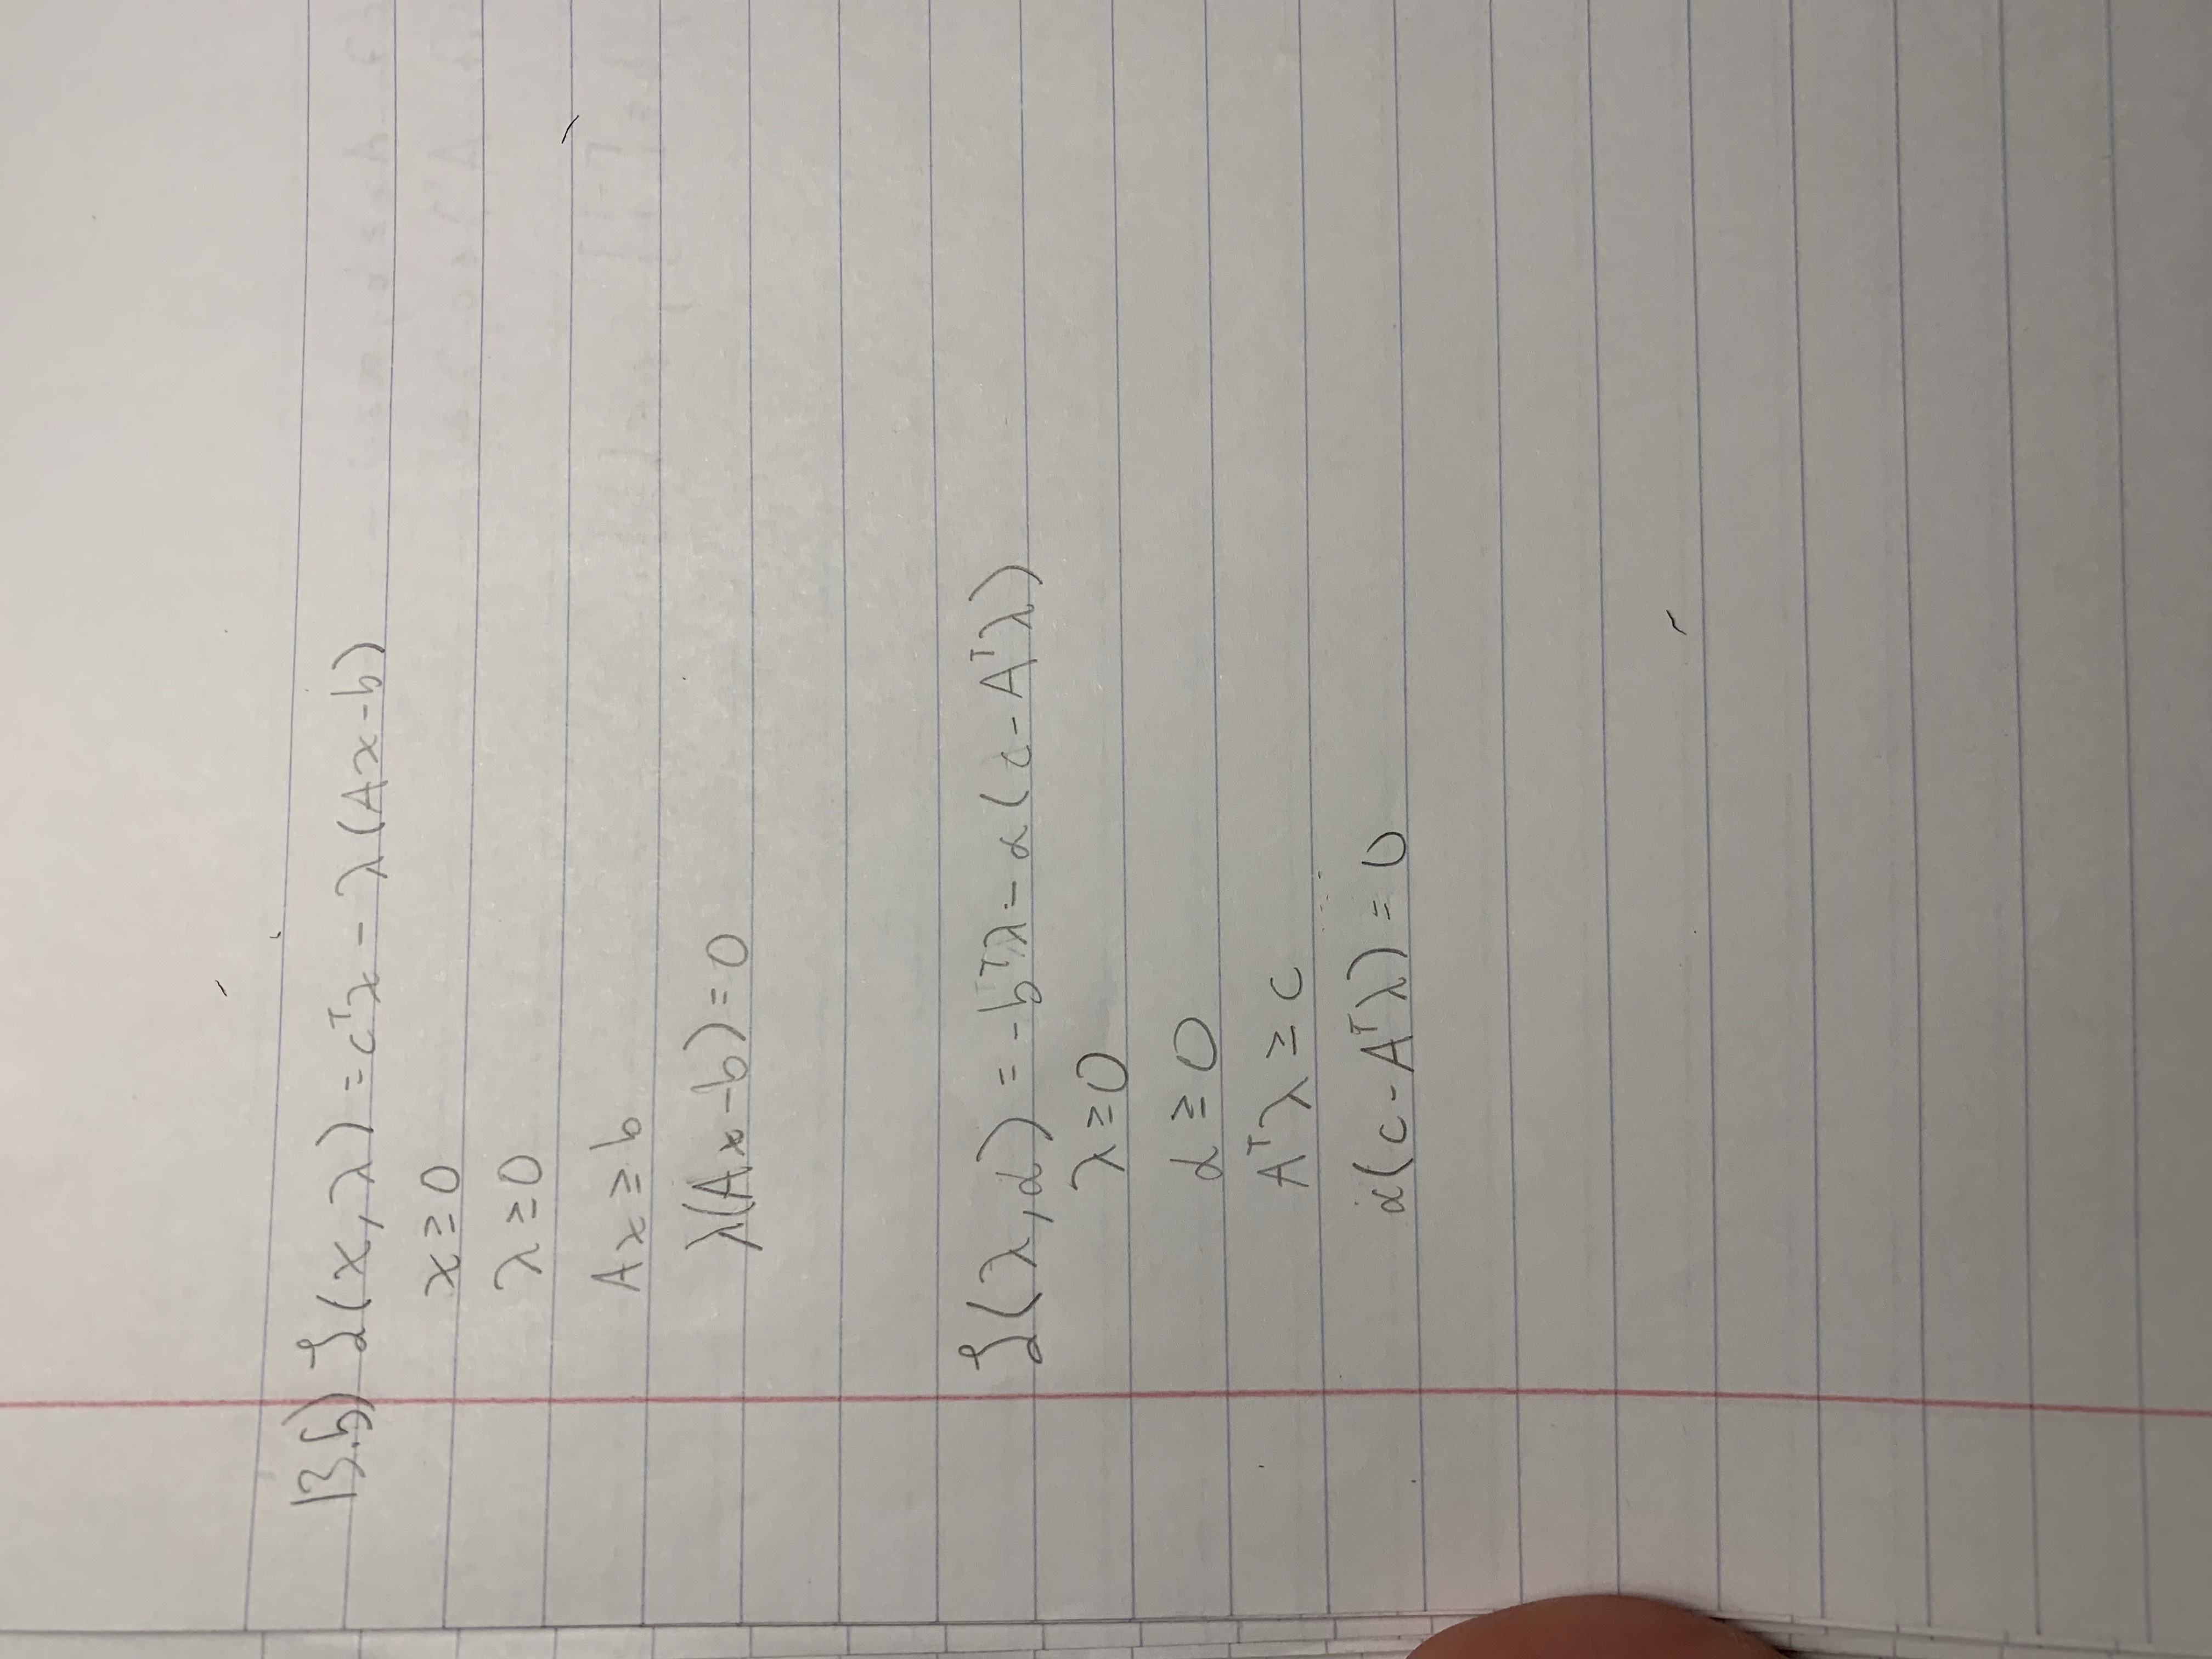 13.5) ℒ(x, λ) = cᵀx - λ(Ax-b)
x ≥ 0
λ ≥ 0
Ax ≥ b
λ(Ax-b) = 0
ℒ(λ, α) = -bᵀλ - α(c - Aᵀλ)
λ ≥ 0
α ≥ 0
Aᵀλ ≥ c
α(c - Aᵀλ) = 0